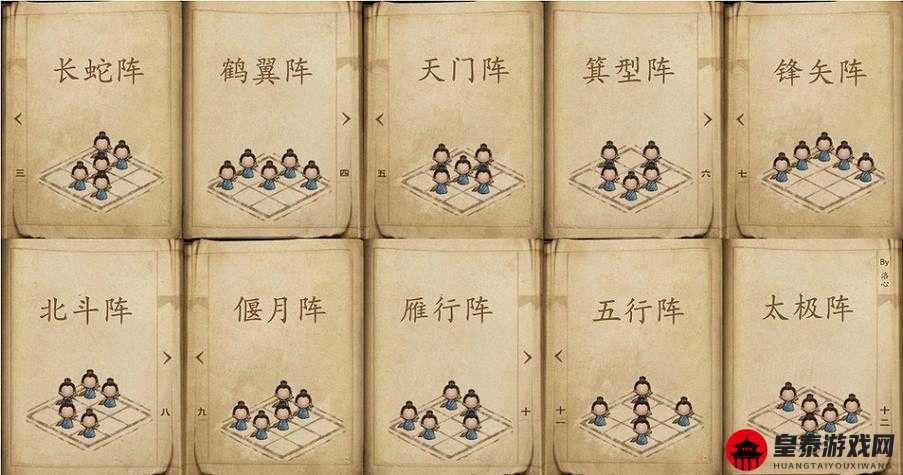 长蛇阵
三
鹤翼阵
四
天门阵
五
箕型阵
六
锋矢阵
七
北斗阵
八
偃月阵
九
雁行阵
十
五行阵
十一
太极阵
十二
By
洛心
皇泰游戏网
HUANGTAIYOUXIWANG